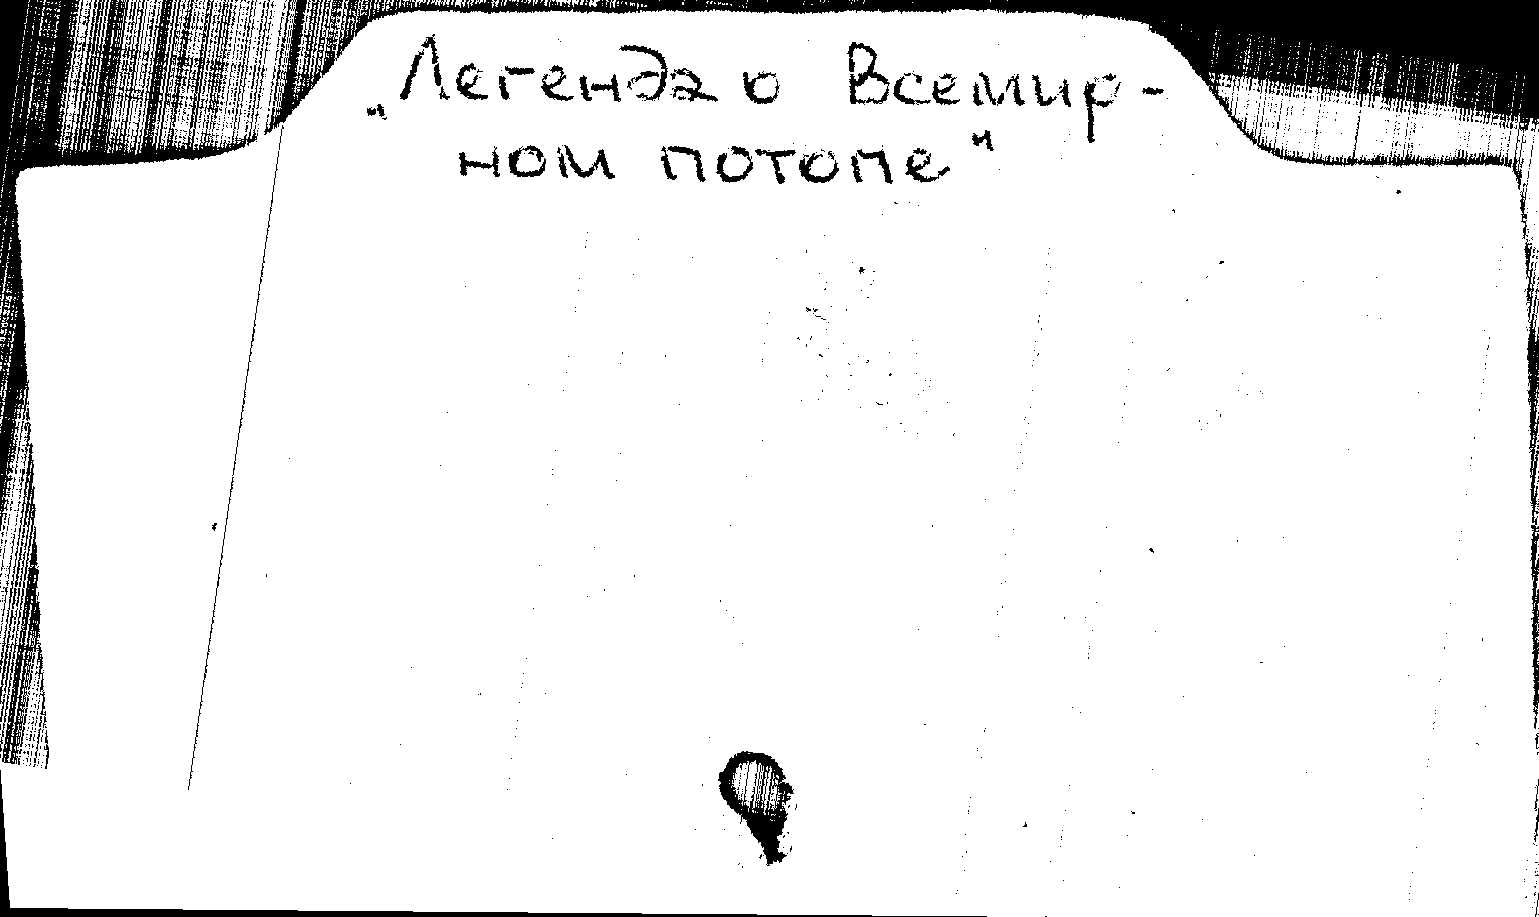 „Легенда о Всемир-
ном потопе"